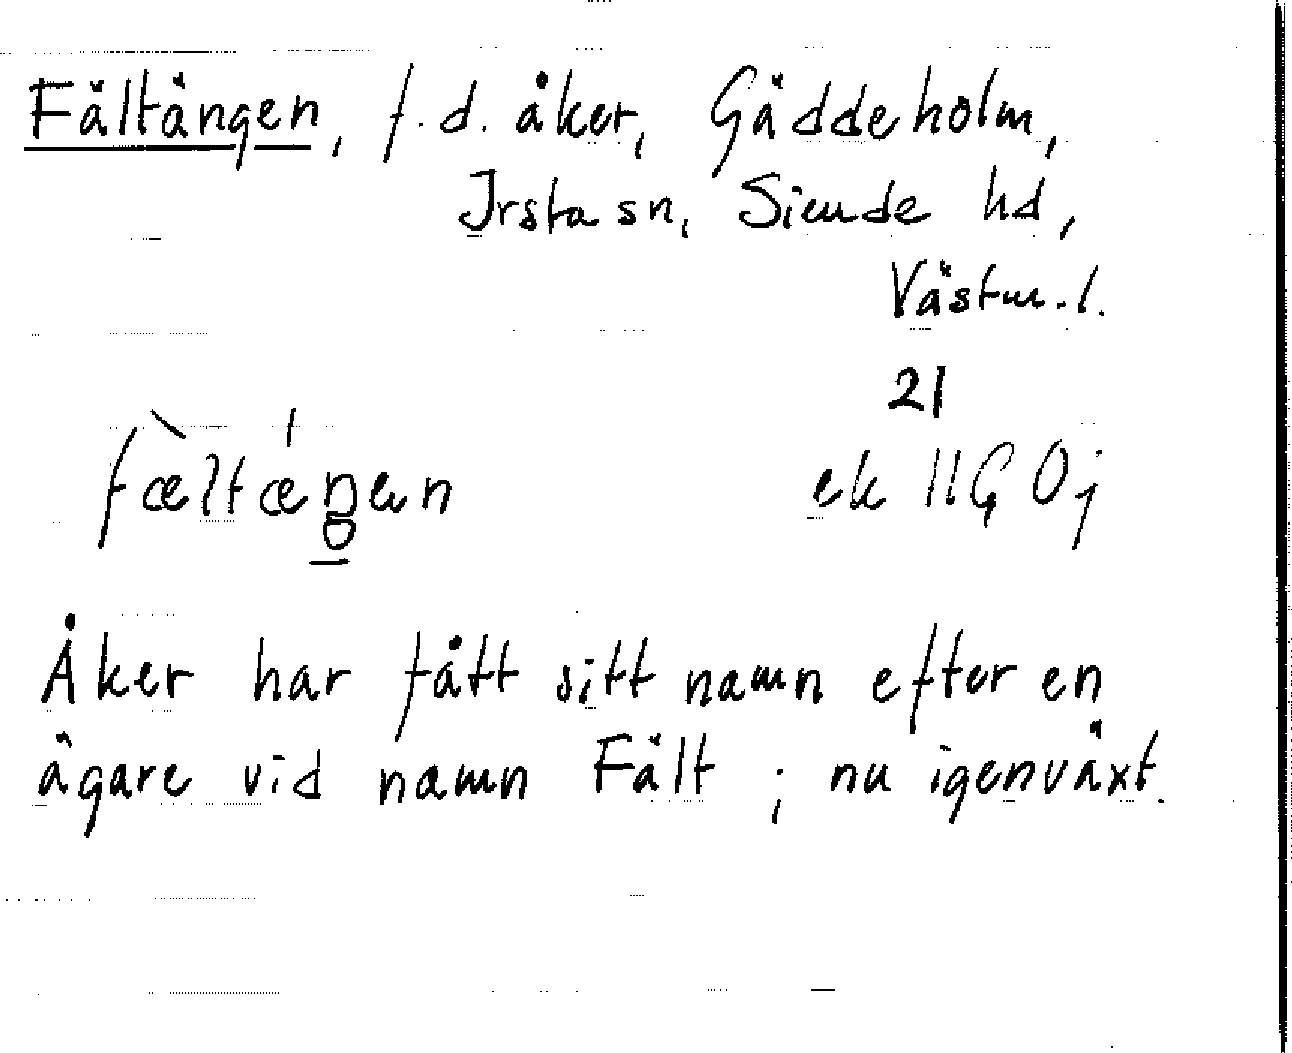 Fältängen, f.d. åker, Gäddeholm,
Irsta sn, Siende hd,
Västm.l.
21
fæ̀ltæ̍ŋen ek 11G 0j
Åker har fått sitt namn efter en
ägare vid namn Fält ; nu igenväxt.